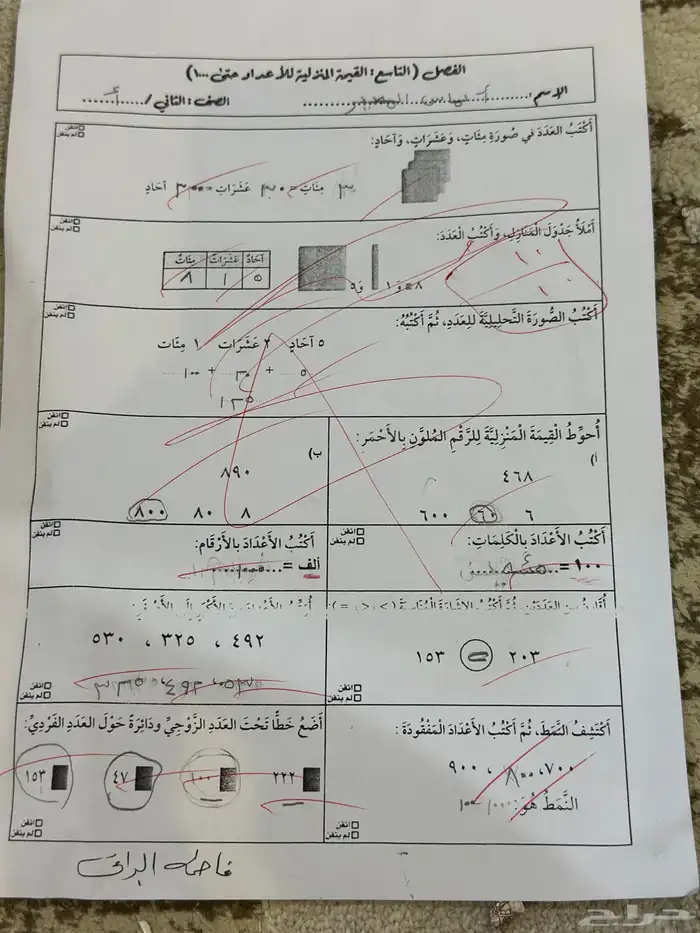 الفصل (التاسع: القيمة المنزلية للأعداد حتى ١٠٠٠)
الاسم:
الصف: الثاني / أ
أَكْتُبُ العَدَدَ في صُورَةِ مِئَاتٍ، وَعَشَرَاتٍ، وَآحَادٍ:
٣ مِئَاتٍ = ٣٠ عَشَرَاتٍ = ٣٠٠ آحَادٍ
اتقن
لم يتقن
أَمْلَأُ جَدْوَلَ الْمَنَازِلِ، وَأَكْتُبُ الْعَدَدَ:
آحَادٌ عَشَرَاتٌ مِئَاتٌ
٥ ١ ٨
اتقن
لم يتقن
أَكْتُبُ الصُّورَةَ التَّحلِيلِيَّةَ لِلعَدَدِ، ثُمَّ أَكْتُبُهُ:
٥ آحَادٍ ٢ عَشَرَاتٍ ١ مِئَات
٥ + ٣٠ + ١٠٠
١٣٥
اتقن
لم يتقن
أُحوِّطُ الْقِيمَةَ الْمَنْزِلِيَّةَ لِلرَّقْمِ المُلوَّنِ بِالأَحْمَرِ:
أ)
٤٦٨
٦ ٦٠ ٦٠٠
ب)
٨٩٠
٨ ٨٠ ٨٠٠
اتقن
لم يتقن
أَكْتُبُ الأَعْدَادَ بِالْكَلِمَاتِ:
١٠٠ =
اتقن
لم يتقن
أَكْتُبُ الأَعْدَادَ بالأَرْقَامِ:
ألف =
اتقن
لم يتقن
٢٠٣ = ١٥٣
اتقن
لم يتقن
٤٩٢ ، ٣٢٥ ، ٥٣٠
اتقن
لم يتقن
أَكْتَشِفُ النَّمَطَ، ثُمَّ أَكْتُبُ الأَعْدَادَ الْمَفْقُودَةَ:
٧٠٠، ٨٠٠ ، ٩٠٠
النَّمَطُ هُوَ: ١٠٠
اتقن
لم يتقن
أَضَعُ خَطًّا تَحْتَ العَدَدِ الزَّوْجِيِّ ودَائِرَةً حَوْلَ العَدَدِ الفَرْدِيِّ:
٢٢٢ ١٠٠ ٤٧ ١٥٣
اتقن
لم يتقن
حراج